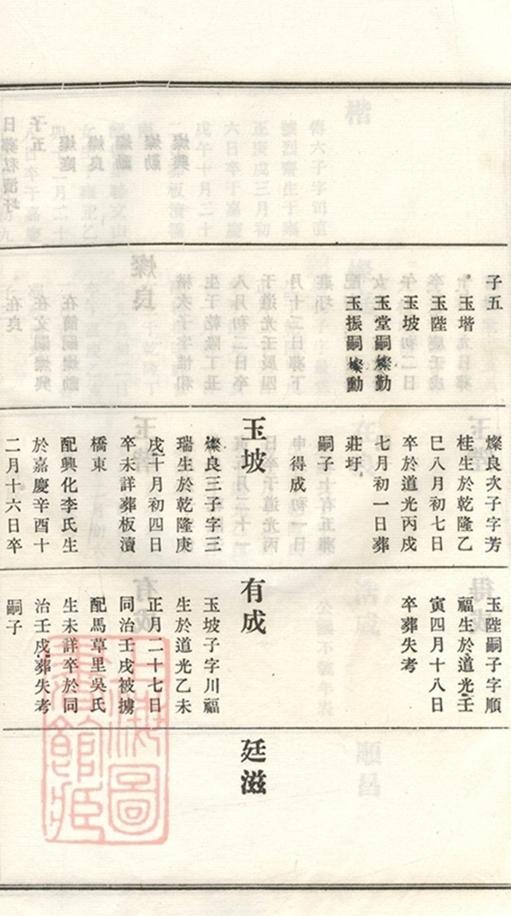 子五
玉堦
玉陛
玉坡
玉堂嗣燦勤
玉振嗣燦動
燦良次子字芳
桂生於乾隆乙
巳八月初七日
卒於道光丙戌
七月初一日葬
莊圩
嗣子
得成
玉坡
燦良三子字三
瑞生於乾隆庚
戌十月初四日
卒未詳葬板瀆
橋東
配興化李氏生
於嘉慶辛酉十
二月十六日卒
玉陛嗣子字順
福生於道光壬
寅四月十八日
卒葬失考
有成
玉坡子字川福
生於道光乙未
正月二十七日
同治壬戌被擄
配馬草里吳氏
生未詳卒於同
治壬戌葬失考
嗣子
廷滋
上海圖
書館藏